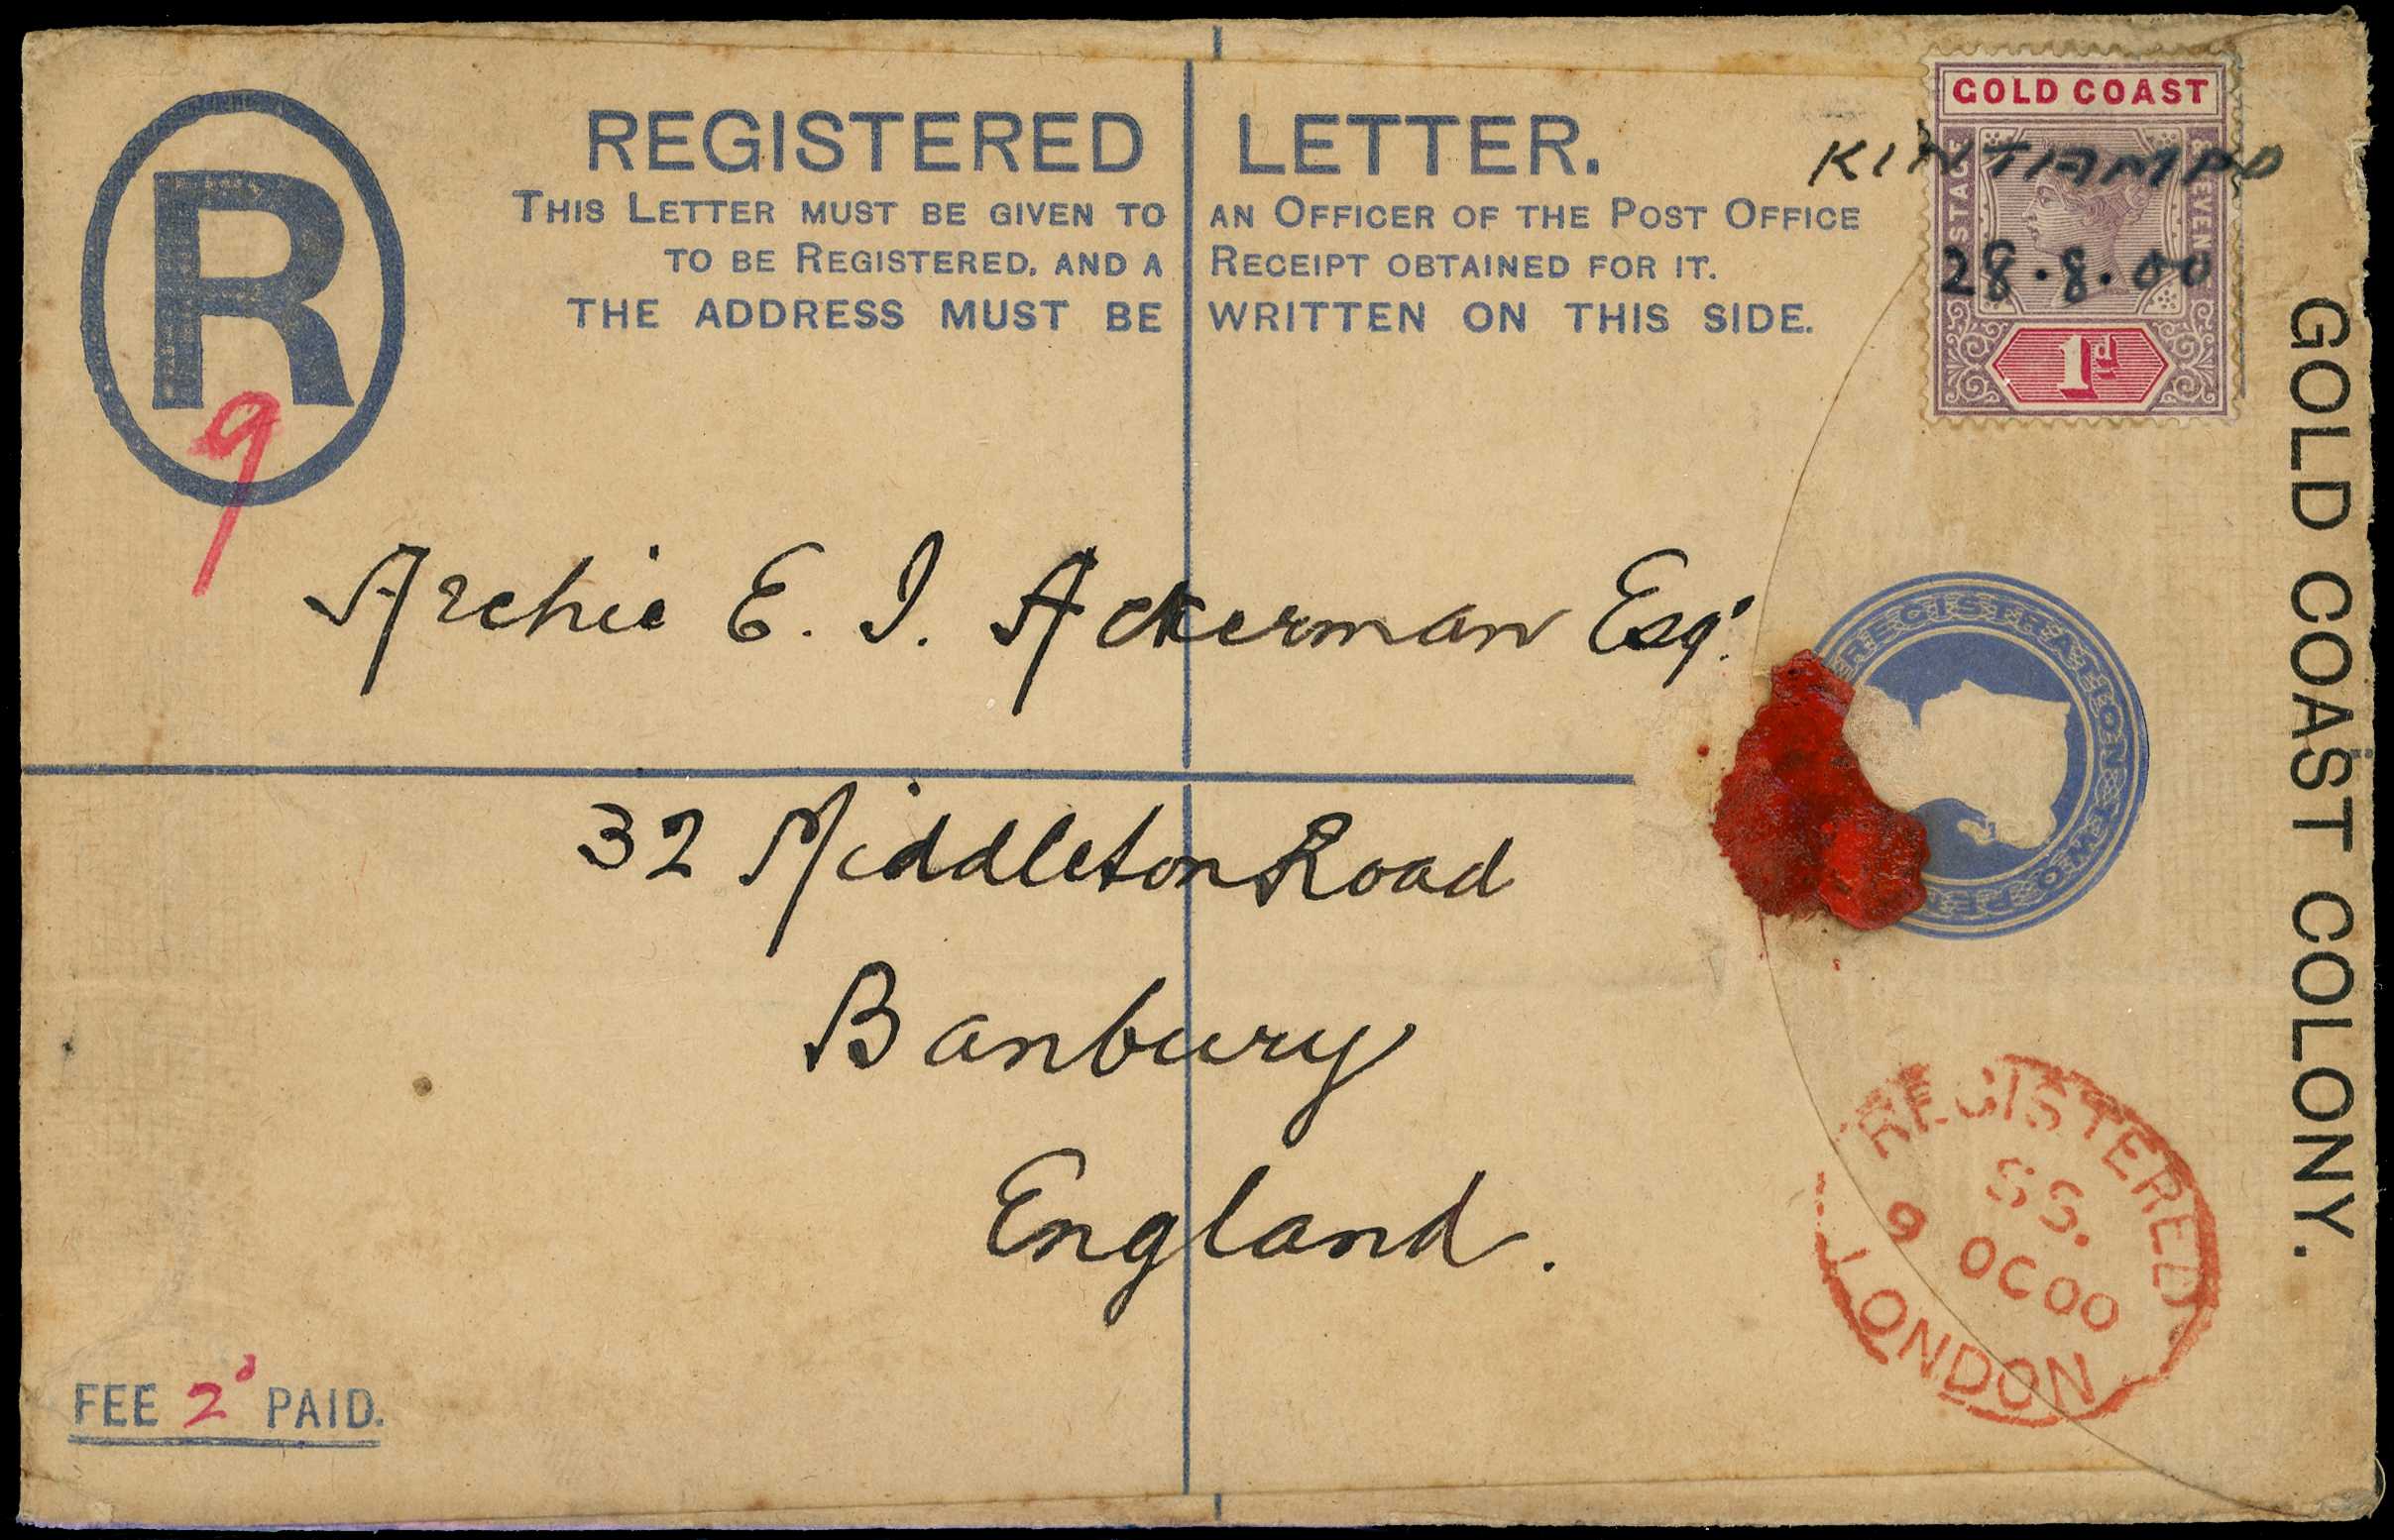 GOLD COAST
REGISTERED LETTER.
KINTAMPO
THIS LETTER MUST BE GIVEN TO AN OFFICER OF THE POST OFFICE
TO BE REGISTERED, AND A RECEIPT OBTAINED FOR IT.
THE ADDRESS MUST BE WRITTEN ON THIS SIDE.
R
9
POSTAGE
& REVENUE
28.8.00
1d
GOLD COAST COLONY.
Archie E. I. Ackerman Esqr.
REGISTRATION TWO PENCE
32 Middleton Road
Banbury
England.
REGISTERED
SS.
9 OC 00
LONDON
FEE 2d PAID.